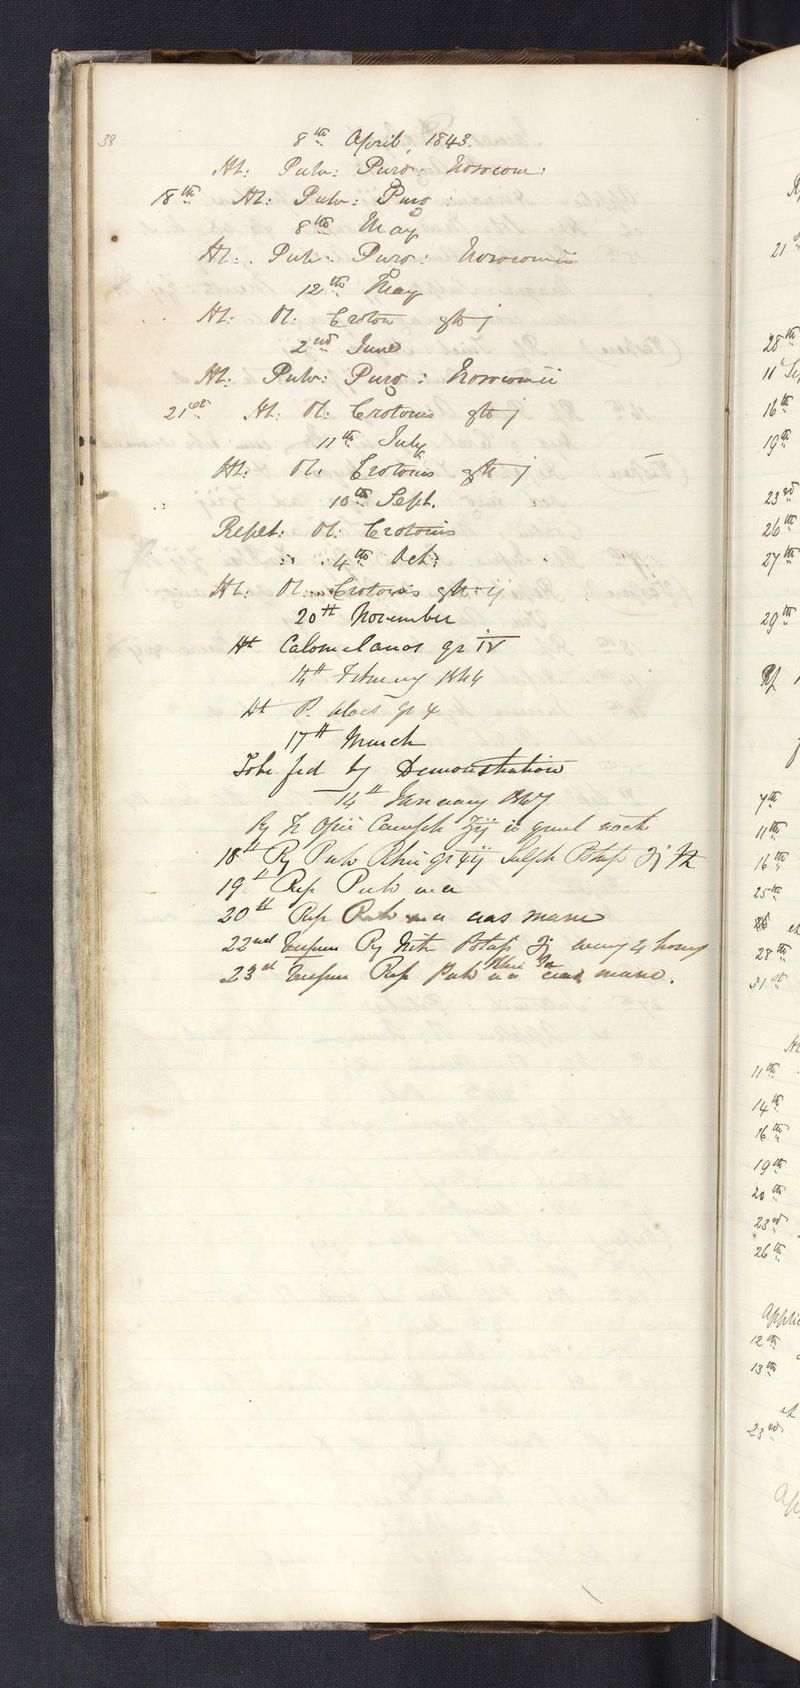 38
8th April, 1843.
Ht: Pulv: Purg: Nosocom:
18th Ht: Pulv: Purg:
8th May
Ht: Pulv: Purg: Nosocomii
12th May
Ht: Ol: Croton gtt j
2nd June
Ht: Pulv: Purg: Nosocomii
21st Ht: Ol: Crotonis gtt j
11th July
Ht: Ol: Crotonis gtt j
10th Sept.
Repet: Ol: Crotonis
4th Oct:
Ht: Ol: Crotonis gtt ij
20th November
Ht Calomelanos gr IV
14th February 1844
Ht P. Aloes gr
17th March
To be fed by Demonstration
14th January 1847
Rx Tr Opii Camph ʒij nocte
18th Rx Pulv Rhei gr Sulph Potass ʒj Ht
19th Rep Pulv
20th Rep Pulv cras mane
22nd Vespere Rx Nitr Potass ʒj every 4 hours
23rd Vespere Rep Pulv Rhei cras mane.
21
28th
11th
16th
19th
23rd
26th
27th
29th
7th
11th
16th
25th
28th
31st
11th
14th
16th
19th
20th
23rd
26th
12th
13th
23rd